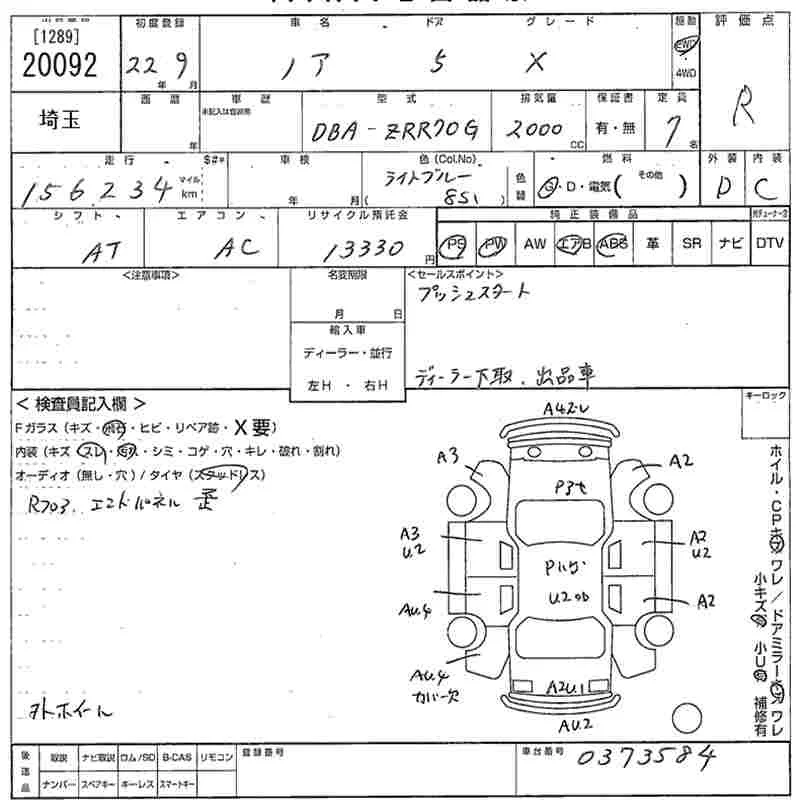 [1289]
20092
初度登録
22年 9月
車名
ノア
ドア
5
グレード
X
駆動
2WD
4WD
評価点
R
埼玉
西暦
年
車歴
未記入は自家用
型式
DBA-ZRR70G
排気量
2000cc
保証書
有・無
定員
7名
走行
$#*
156,234
マイル
km
車検
年 月
色(Col.No)
ライトブルー
(851)
色替
燃料
G・D・電気(その他)
外装
D
内装
C
シフト
AT
エアコン
AC
リサイクル預託金
13330円
純正装備品
PS PW AW エアB ABS 革 SR ナビ DTV
<注意事項>
名変期限
月 日
輸入車
ディーラー・並行
左H・右H
<セールスポイント>
プッシュスタート
ディーラー下取,出品車
キーロック
<検査員記入欄>
Fガラス(キズ・飛石・ヒビ・リペア跡・X要)
内装(キズ・スレ・汚れ・シミ・コゲ・穴・キレ・破れ・割れ)
オーディオ(無し・穴)/タイヤ(スタッドレス)
Rフロア, エンドパネル 歪
外ホイール
A42・U
A3
A2
A3
U.2
A2
U2
AU.4
A2
U200
AU.4
カバー欠
A2U.1
AU.2
ホイル・CPキズワレ/ドアミラーキズワレ
小キズ有 小U有 補修有
後送品
取説 ナビ取説 ロム/SD B-CAS リモコン
ナンバー スペアキー キーレス スマートキー
登録番号
車台番号
0373584